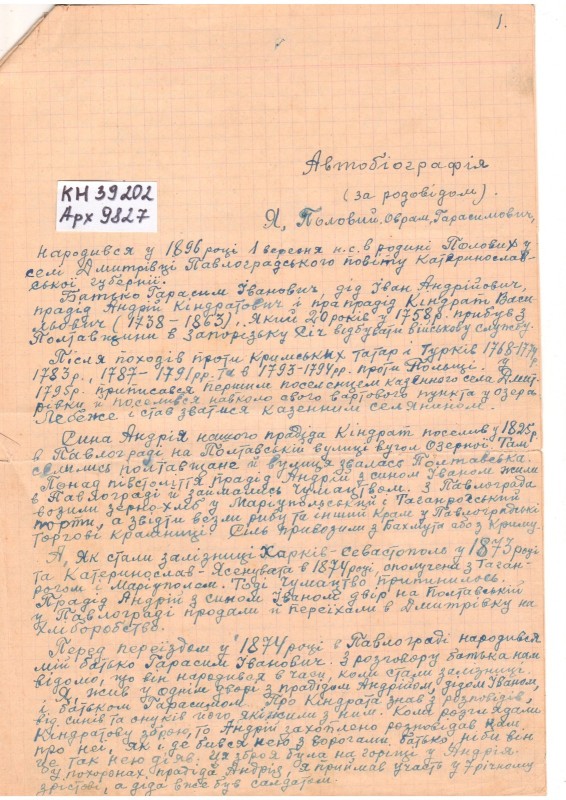 1.
КН 39202
Арх 9827
Автобіографія
(за родовідом).
Я, Половий, Оврам, Гарасимович,
народився у 1896 році 1 вересня н.с. в родині Полових у
селі Дмитрівці Павлоградського повіту Катеринослав-
ської губерній.
Батько Гарасим Іванович, дід Іван Андрійович,
прадід Андрій Кіндратович і пра прадід Кіндрат Васи
льович (1738 – 1863), який 20 років у 1758р. прибув з
Полтавщини в Запорізьку Січ відбувати військову службу.
Після походів проти кримських татар і Турків 1768-1774р
1783 р., 1787 – 1791 рр. та в 1793-1794 рр. проти Польщі. В
1795р. приписався першим поселенцем казенного села Дмит-
рівки й поселився навколо свого вартового пункта у озера
Лебеже і став зватися казенним селянином.
Сина Андрія нашого прадіда Кіндрат поселив у 1825р.
в Павлограді на Полтавській вулиці вугол Озерной. Там
селились полтавщане й вулиця звалась Полтавська.
Понад півстоліття прадід Андрій з сином Іваном жили
в Павлограді й займались чумацтвом. З Павлограда
возили зерно-хліб у Маріупольський і Таганрогський
порти, а звідти везли рибу та інший крам у Павлоградські
торгові крамниці. Сіль привозили з Бахмута або з Криму.
А, як стали залізниці Харків-Севастополь у 1873 році
та Катеринослав-Ясенувата в 1874 році, сполучена з Таган-
рогом і Маріуполем. Тоді чумацтво припинилось.
Прадід Андрій з сином Іваном двір на Полтавській
у Павлограді продали й переїхали в Дмитрівку на
хліборобство.
Перед переїздом у 1874 році в Павлограді народився
мій батько Гарасим Іванович. З розговору батька нам
відомо, що він народився в часи, коли стали залізниці.
Я, жив у однім дворі з прадідом Андрієм, дідом Іваном,
і батьком Гарасимом. Про Кіндрата знав з розповідів,
від синів та онуків його які жили з ним. Коли розглядали
Кіндратову зброю, то Андрій захоплено розповідав нам
про неї, як і де бився нею з ворогами батько, ніби він
це так нею діяв. Ця зброя була на горищі у Андрія.
У похоронах прадіда Андрія, я приймав участь у 7 річному
зрістові, а діда вже був солдатом.